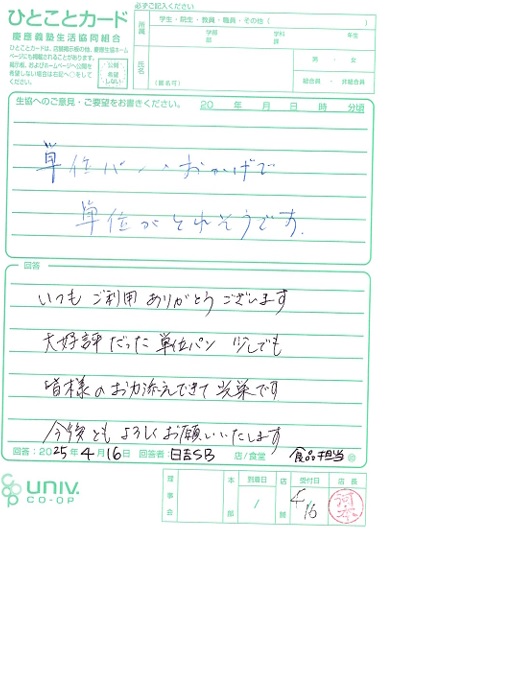 必ずご記入ください
ひとことカード
慶應義塾生活協同組合
ひとことカードは、店舗掲示板の他、慶應生協ホームページにも掲載されることがあります。
掲示板、およびホームページへ公開を希望しない場合は右記へ○をしてください。
公開希望しない
所属
学生・院生・教員・職員・その他（　　　）
学部
学科
年生
氏名
（匿名可）
男・女
組合員・非組合員
生協へのご意見・ご要望をお書きください。 20　年　月　日　時　分頃
単位パン おかげで
単位がとれそうです.
回答
いつも ご利用 ありがとう ございます
大好評だった 単位パン 少しでも
皆様の お力添えできて 光栄です
今後とも よろしく お願いいたします
回答：2025年4月16日 回答者 日吉SB 店/食堂 食品担当
UNIV.
CO-OP
理事会
本部
到着日
/
店舗
受付日
4/16
店長